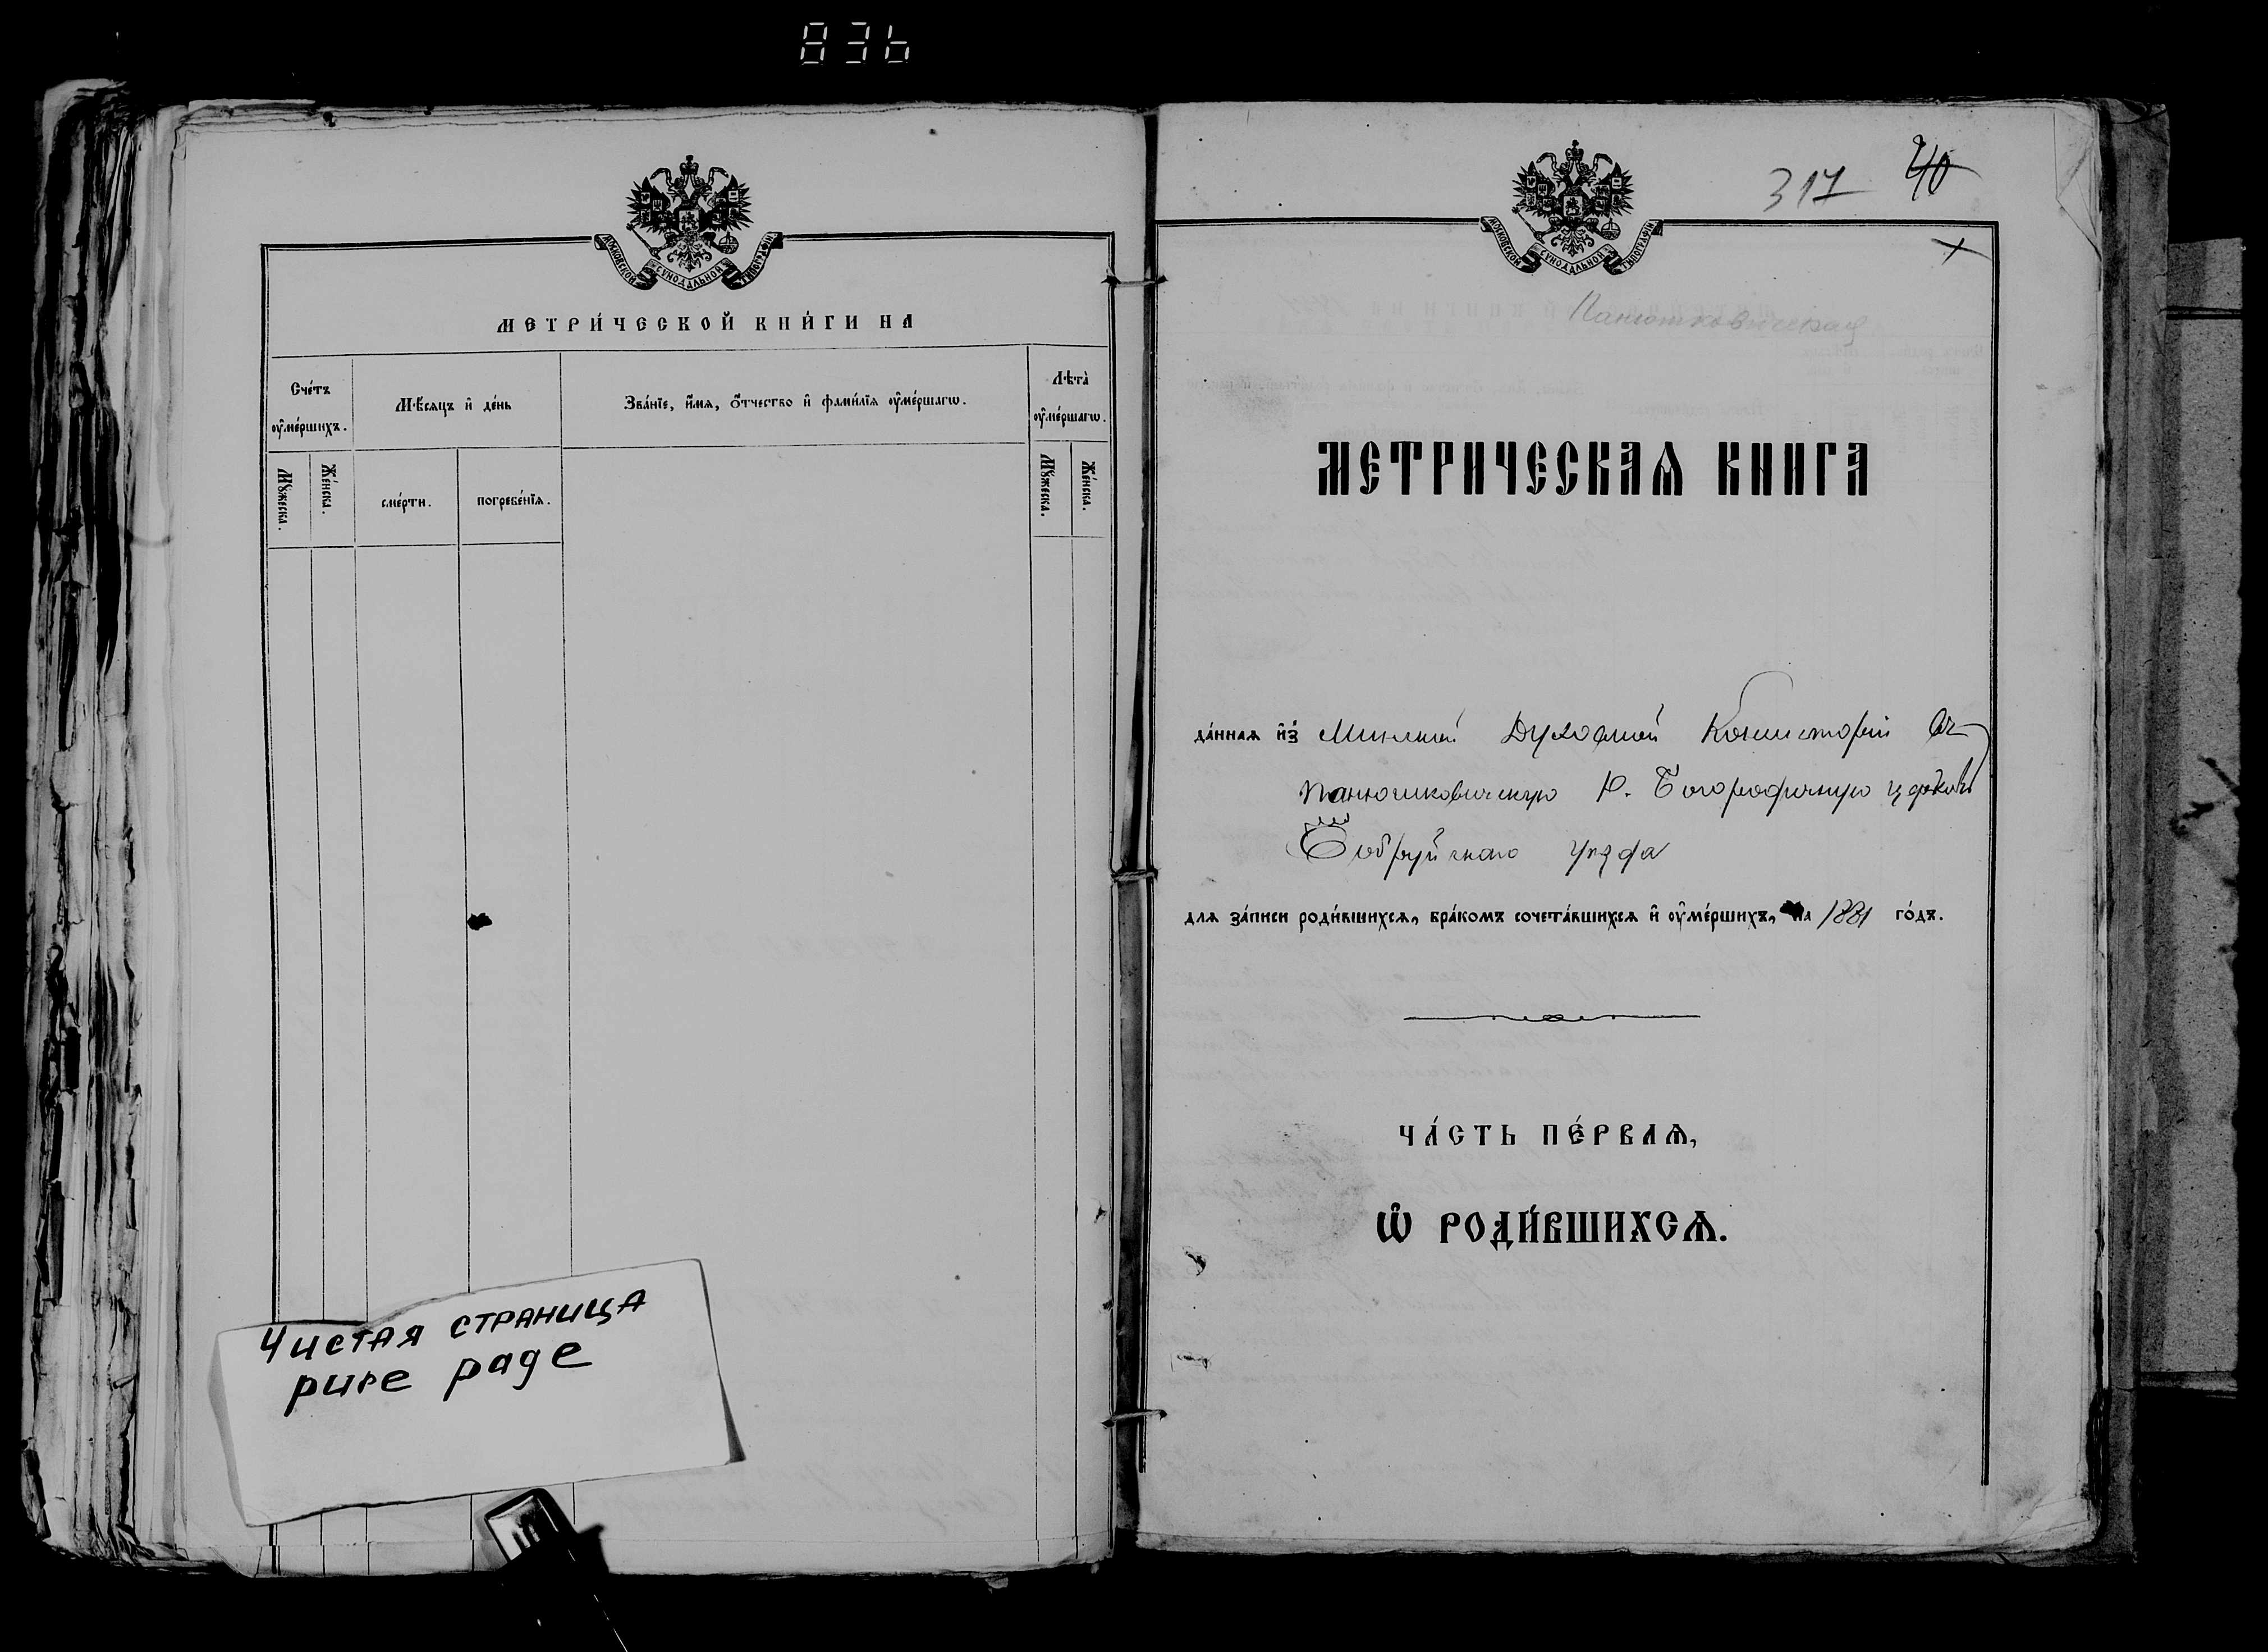 836
МОСКОВСКОЙ СѴНОДАЛЬНОЙ ТИПОГРАФІИ
МЕТРИ́ЧЕСКОЙ КНИ́ГИ НА
Сче́тъ ᲂу҆ме́ршихъ.
Мѣ́сяцъ и҆ де́нь
Зва́нїе, и҆́мѧ, ѻ҆́тчество и҆ фами́лїѧ ᲂу҆ме́ршагѡ.
Лѣта̀ ᲂу҆ме́ршагѡ.
Мꙋ́жеска.
Же́нска.
сме́рти.
погребе́нїѧ.
Мꙋ́жеска.
Же́нска.
Чистая страница
pure page
317 40
МОСКОВСКОЙ СѴНОДАЛЬНОЙ ТИПОГРАФІИ
Панюшковичская
МЕТРИЧЕСКАѦ КНИГА
да́ннаѧ и҆з̾ Минской Духовной Консисторіи въ
Панюшковичскую Р. Богородичную церковь
Бобруйскаго уѣзда
длѧ за́писи роди́вшихсѧ, бра́комъ сочета́вшихсѧ и҆ ᲂу҆ме́ршихъ, на 1881 го́дъ.
ЧА́СТЬ ПЕ́РВАѦ,
Ѽ РОДИ́ВШИХСѦ.